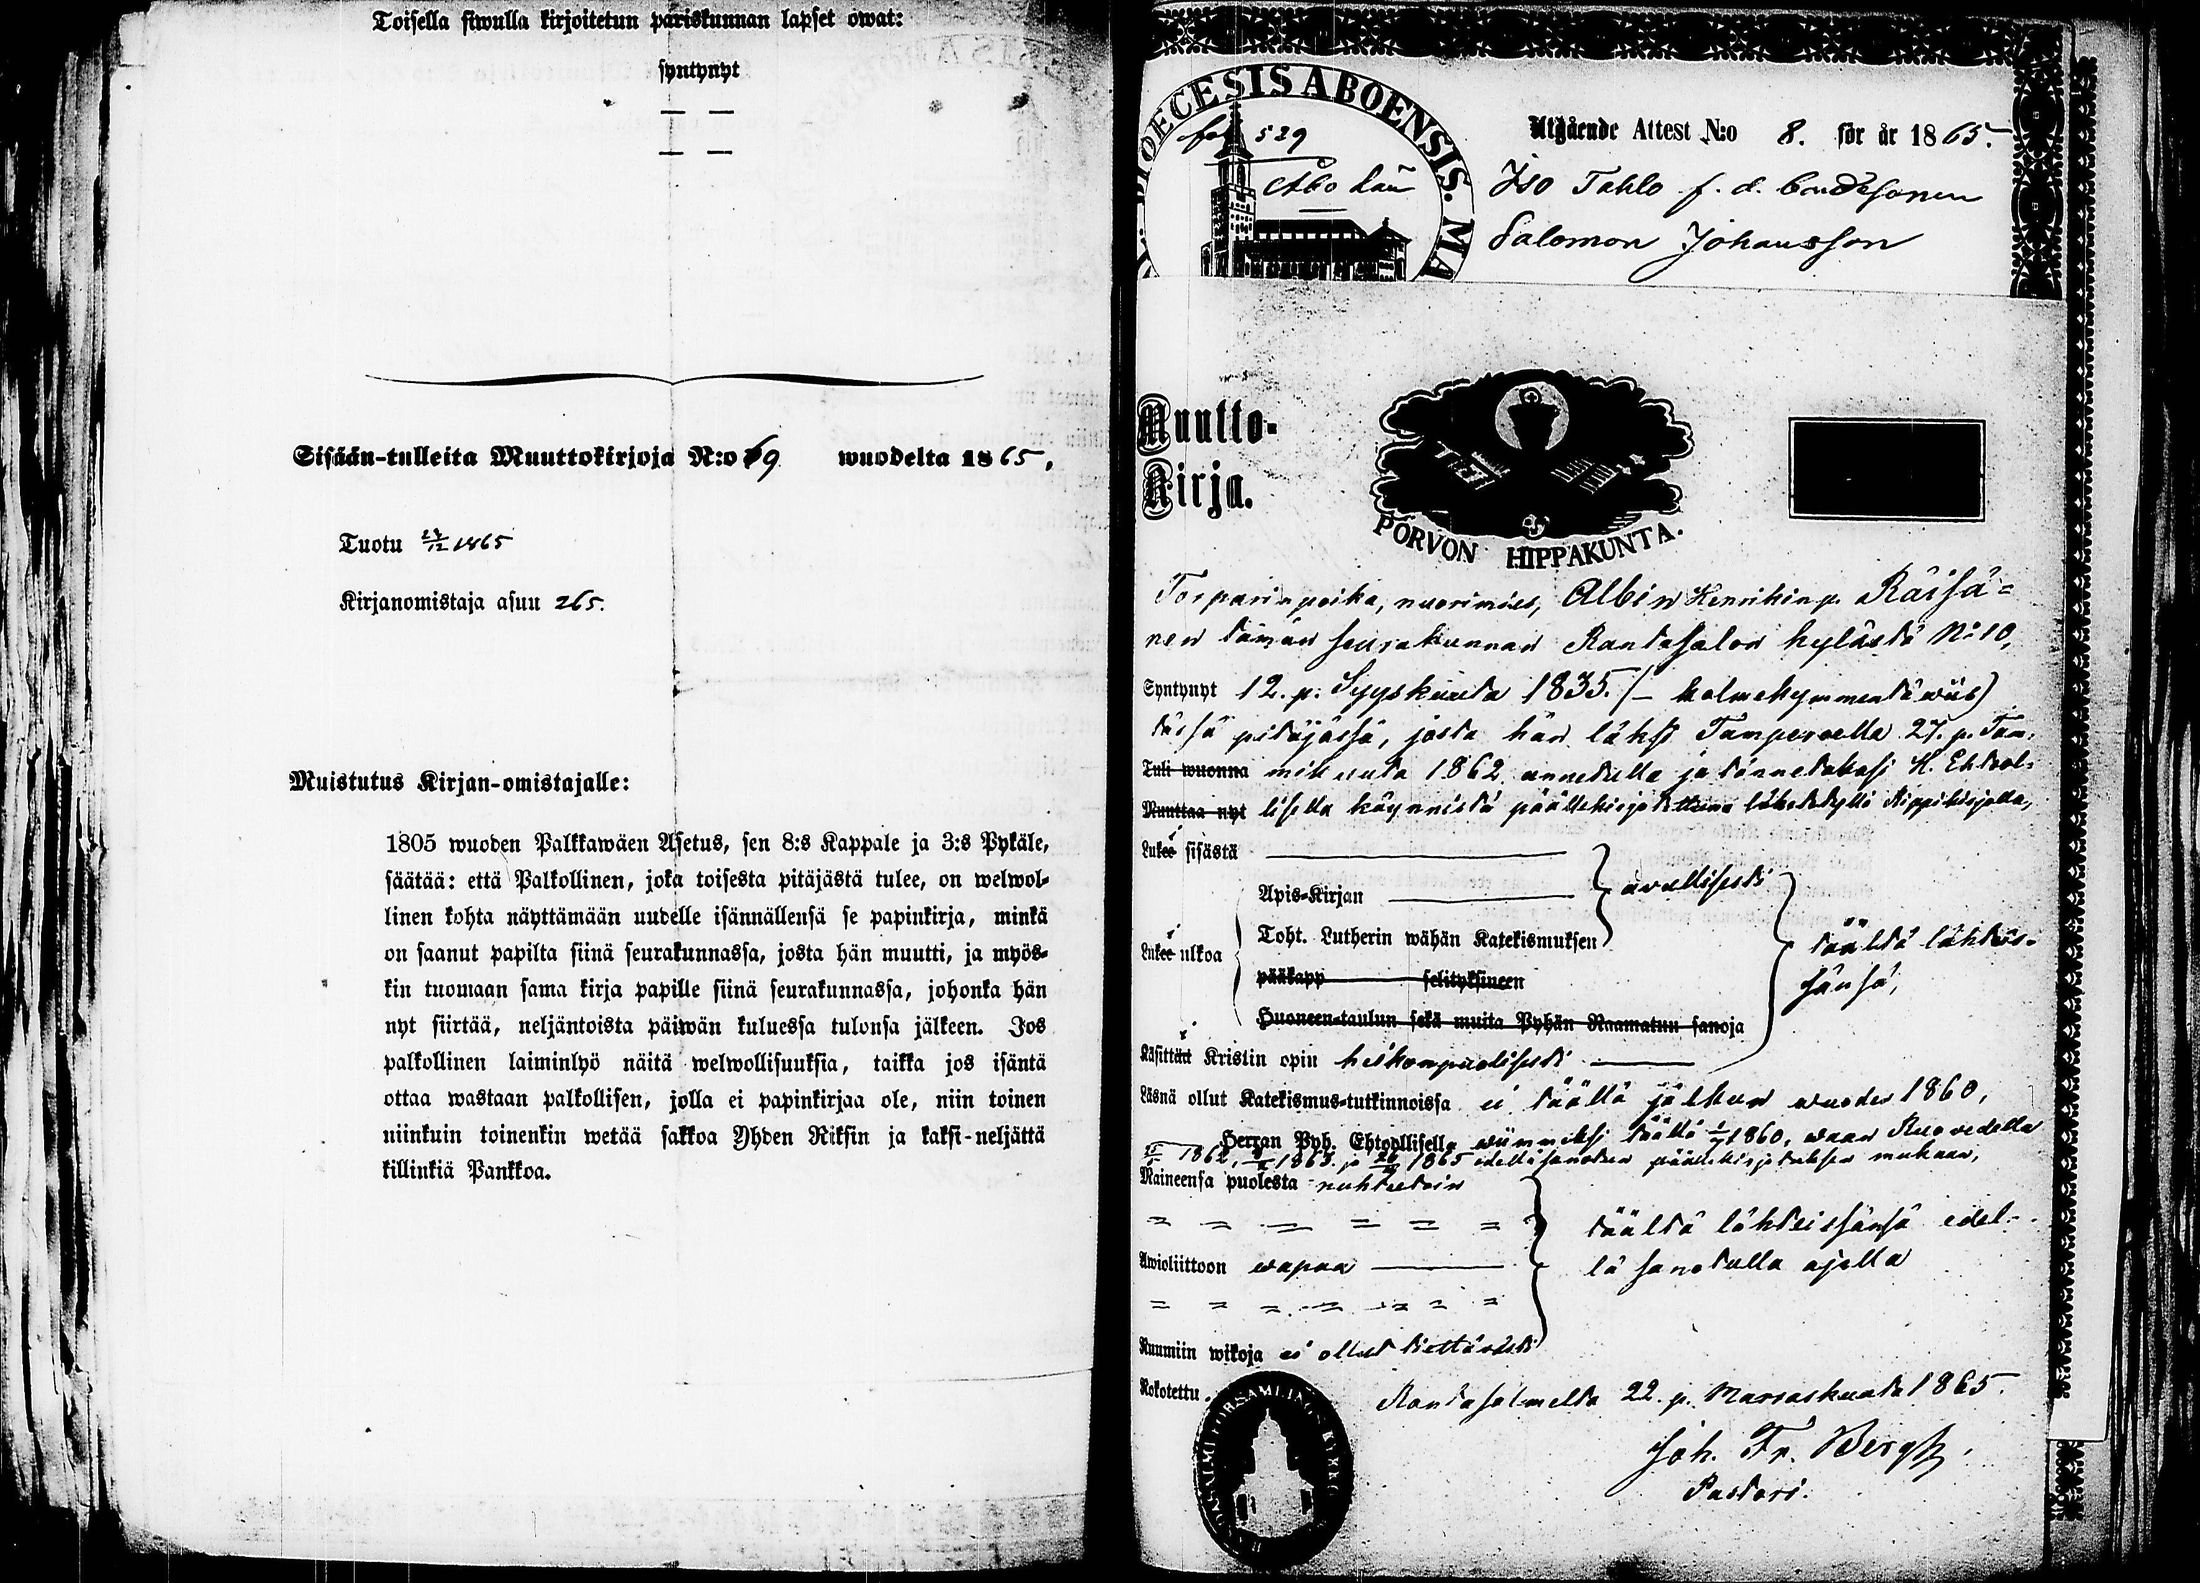 Toisella siwulla kirjoitetun pariskunnan lapset owat:
syntynyt
— —
— —
Sisään-tulleita Muuttokirjoja N:o 69 wuodelta 1865.
Tuotu 23/12 1865
Kirjanomistaja asuu 265.
Muistutus Kirjan-omistajalle:
1805 wuoden Palkkawäen Asetus, sen 8:s Kappale ja 3:s Pykäle,
säätää: että Palkollinen, joka toisesta pitäjästä tulee, on welwol-
linen kohta näyttämään uudelle isännällensä se papinkirja, minkä
on saanut papilta siinä seurakunnassa, josta hän muutti, ja myös-
kin tuomaan sama kirja papille siinä seurakunnassa, johonka hän
nyt siirtää, neljäntoista päiwän kuluessa tulonsa jälkeen. Jos
palkollinen laiminlyö näitä welwollisuuksia, taikka jos isäntä
ottaa wastaan palkollisen, jolla ei papinkirjaa ole, niin toinen
niinkuin toinenkin wetää sakkoa Yhden Riksin ja kaksi-neljättä
killinkiä Pankkoa.
DIOECESIS ABOENSIS. MA
fol 529
Åbo Län
Utgående Attest N:o 8. för år 1865.
Iso Tahlo f. d. bondesonen
Salomon Johansson
Muutto-
Kirja.
PORVON HIPPAKUNTA.
Torparinpoika, nuorimies, Albin Henrikinp. Räisä-
nen tämän seurakunnan Rantasalon kylästä No 10,
Syntynyt 12. p. Syyskuuta 1835. (— kolmekymmentäwiis)
tässä pitäjässä, josta hän läksi Tampereella 27. p. Tam-
Tuli wuonna mikuuta 1862 annetulla ja tännetakasi H. Ehtool-
Muuttaa nyt lisella käynnistä päällekirjoitettuna lähetetyllä Pippikirjalla,
Lukee sisästä
Apis-Kirjan
Toht. Lutherin wähän Katekismuksen
arullisesti
Lukee ulkoa
pääkapp selityksineen
Huoneen-taulun sekä muita Pyhän Raamatun sanoja
täältä lähteis-
sänsä,
Käsittää Kristin opin heikonpuolisesti
Läsnä ollut Katekismus-tutkinnoissa ei täällä jälkeen wuoden 1860,
Herran Pyh. Ehtoollisella wiimmeksi täällä 1860, waan Ruowedella
1862, 1863. ja 1865 edellisanotun päällekirjoituksen mukaan,
Maineensa puolesta nuhteetoin
täältä lähteissänsä edel-
Awioliittoon wapaa
lä sanotulla ajalla
Ruumiin wikoja ei ollut tiettäwästi
Rokotettu.
Rantasalmelta 22. p. Marraskuuta 1865.
Joh. Fr. Bergh,
Pastori.